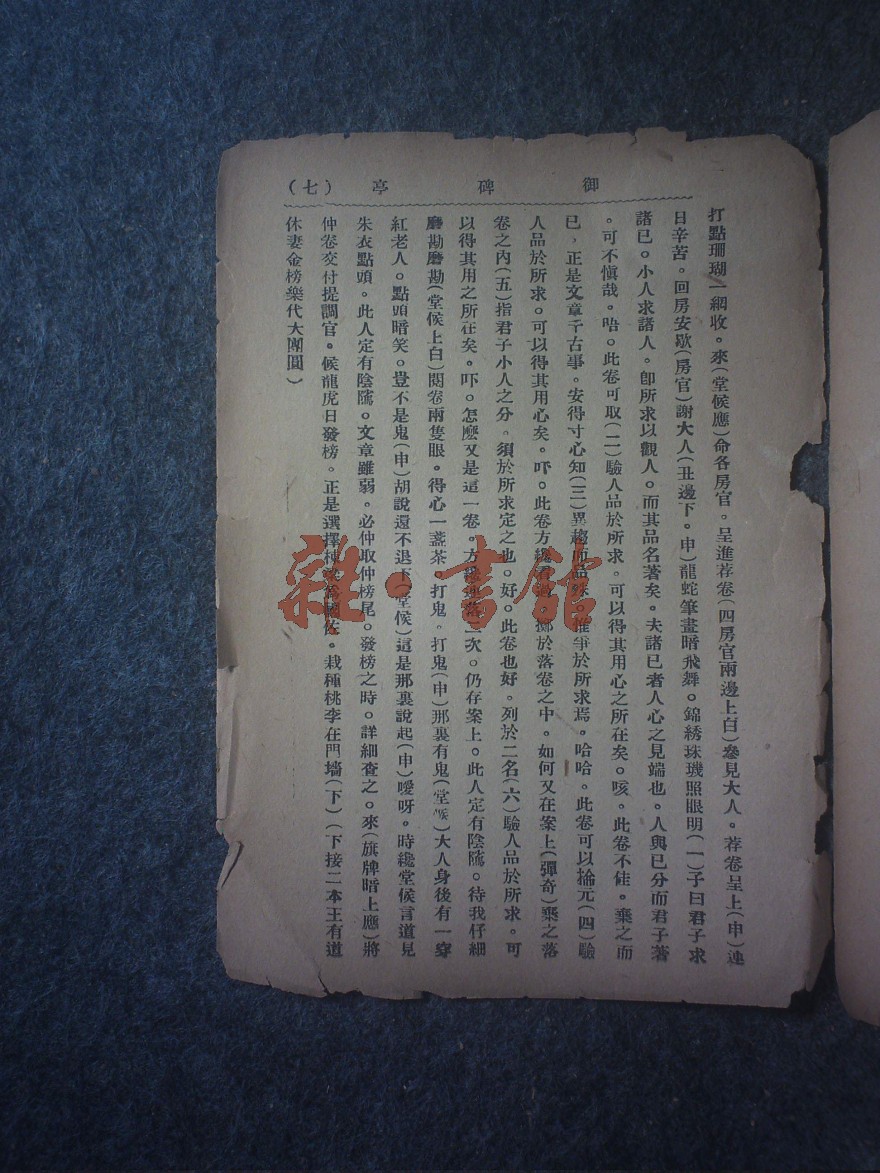 御碑亭（七）
打點珊瑚一網收。來（堂候應）命各房官。呈進荐卷（四房官兩邊上白）參見大人。荐卷呈上（申）連
日辛苦。回房安歇（房官）謝大人（丑邊下。申）龍蛇筆畫暗飛舞。錦綉珠璣照眼明（一）子曰君子求
諸已。小人求諸人。卽所求以觀人。而其品名著矣。夫諸已者人心之見端也。人與已分而君子著
。可不愼哉。唔。此卷可取（二）驗人品於所求。可以得其用心之所在矣。咳。此卷不佳。棄之而
已，正是文章千古事。安得寸心知（三）異趨而品殊。惟爭於所求焉。哈哈。此卷可以掄元（四）驗
人品於所求。可以得其用心矣。吓。此卷方纔看過。擲於落卷之中。如何又在案上（彈奇）棄之落
卷之內（五）指君子小人之分。須於所求定之也。好。此卷也好。列於二名（六）驗人品於所求。可
以得其用之所在矣。吓。怎麼又是這一卷。方纔連落三次。仍存案上。此人定有陰隲。待我仔細
磨勘磨勘（堂候上白）閱卷兩隻眼。得心一盞茶。打鬼。打鬼（申）那裏有鬼（堂候）大人身後有一穿
紅老人。點頭暗笑。豈不是鬼（申）胡說還不退下（堂候）這是那裏說起（申）噯呀。時纔堂候言道見
朱衣點頭。此人定有陰隲。文章雖弱。必仲取仲榜尾。發榜之時。詳細查之。來（旗牌暗上應）將
仲卷交付提調官。候龍虎日發榜。正是選擇棟梁爲國佐。栽種桃李在門墻（下）（下接二本王有道
休妻金榜樂代大團圓）
雜·書館